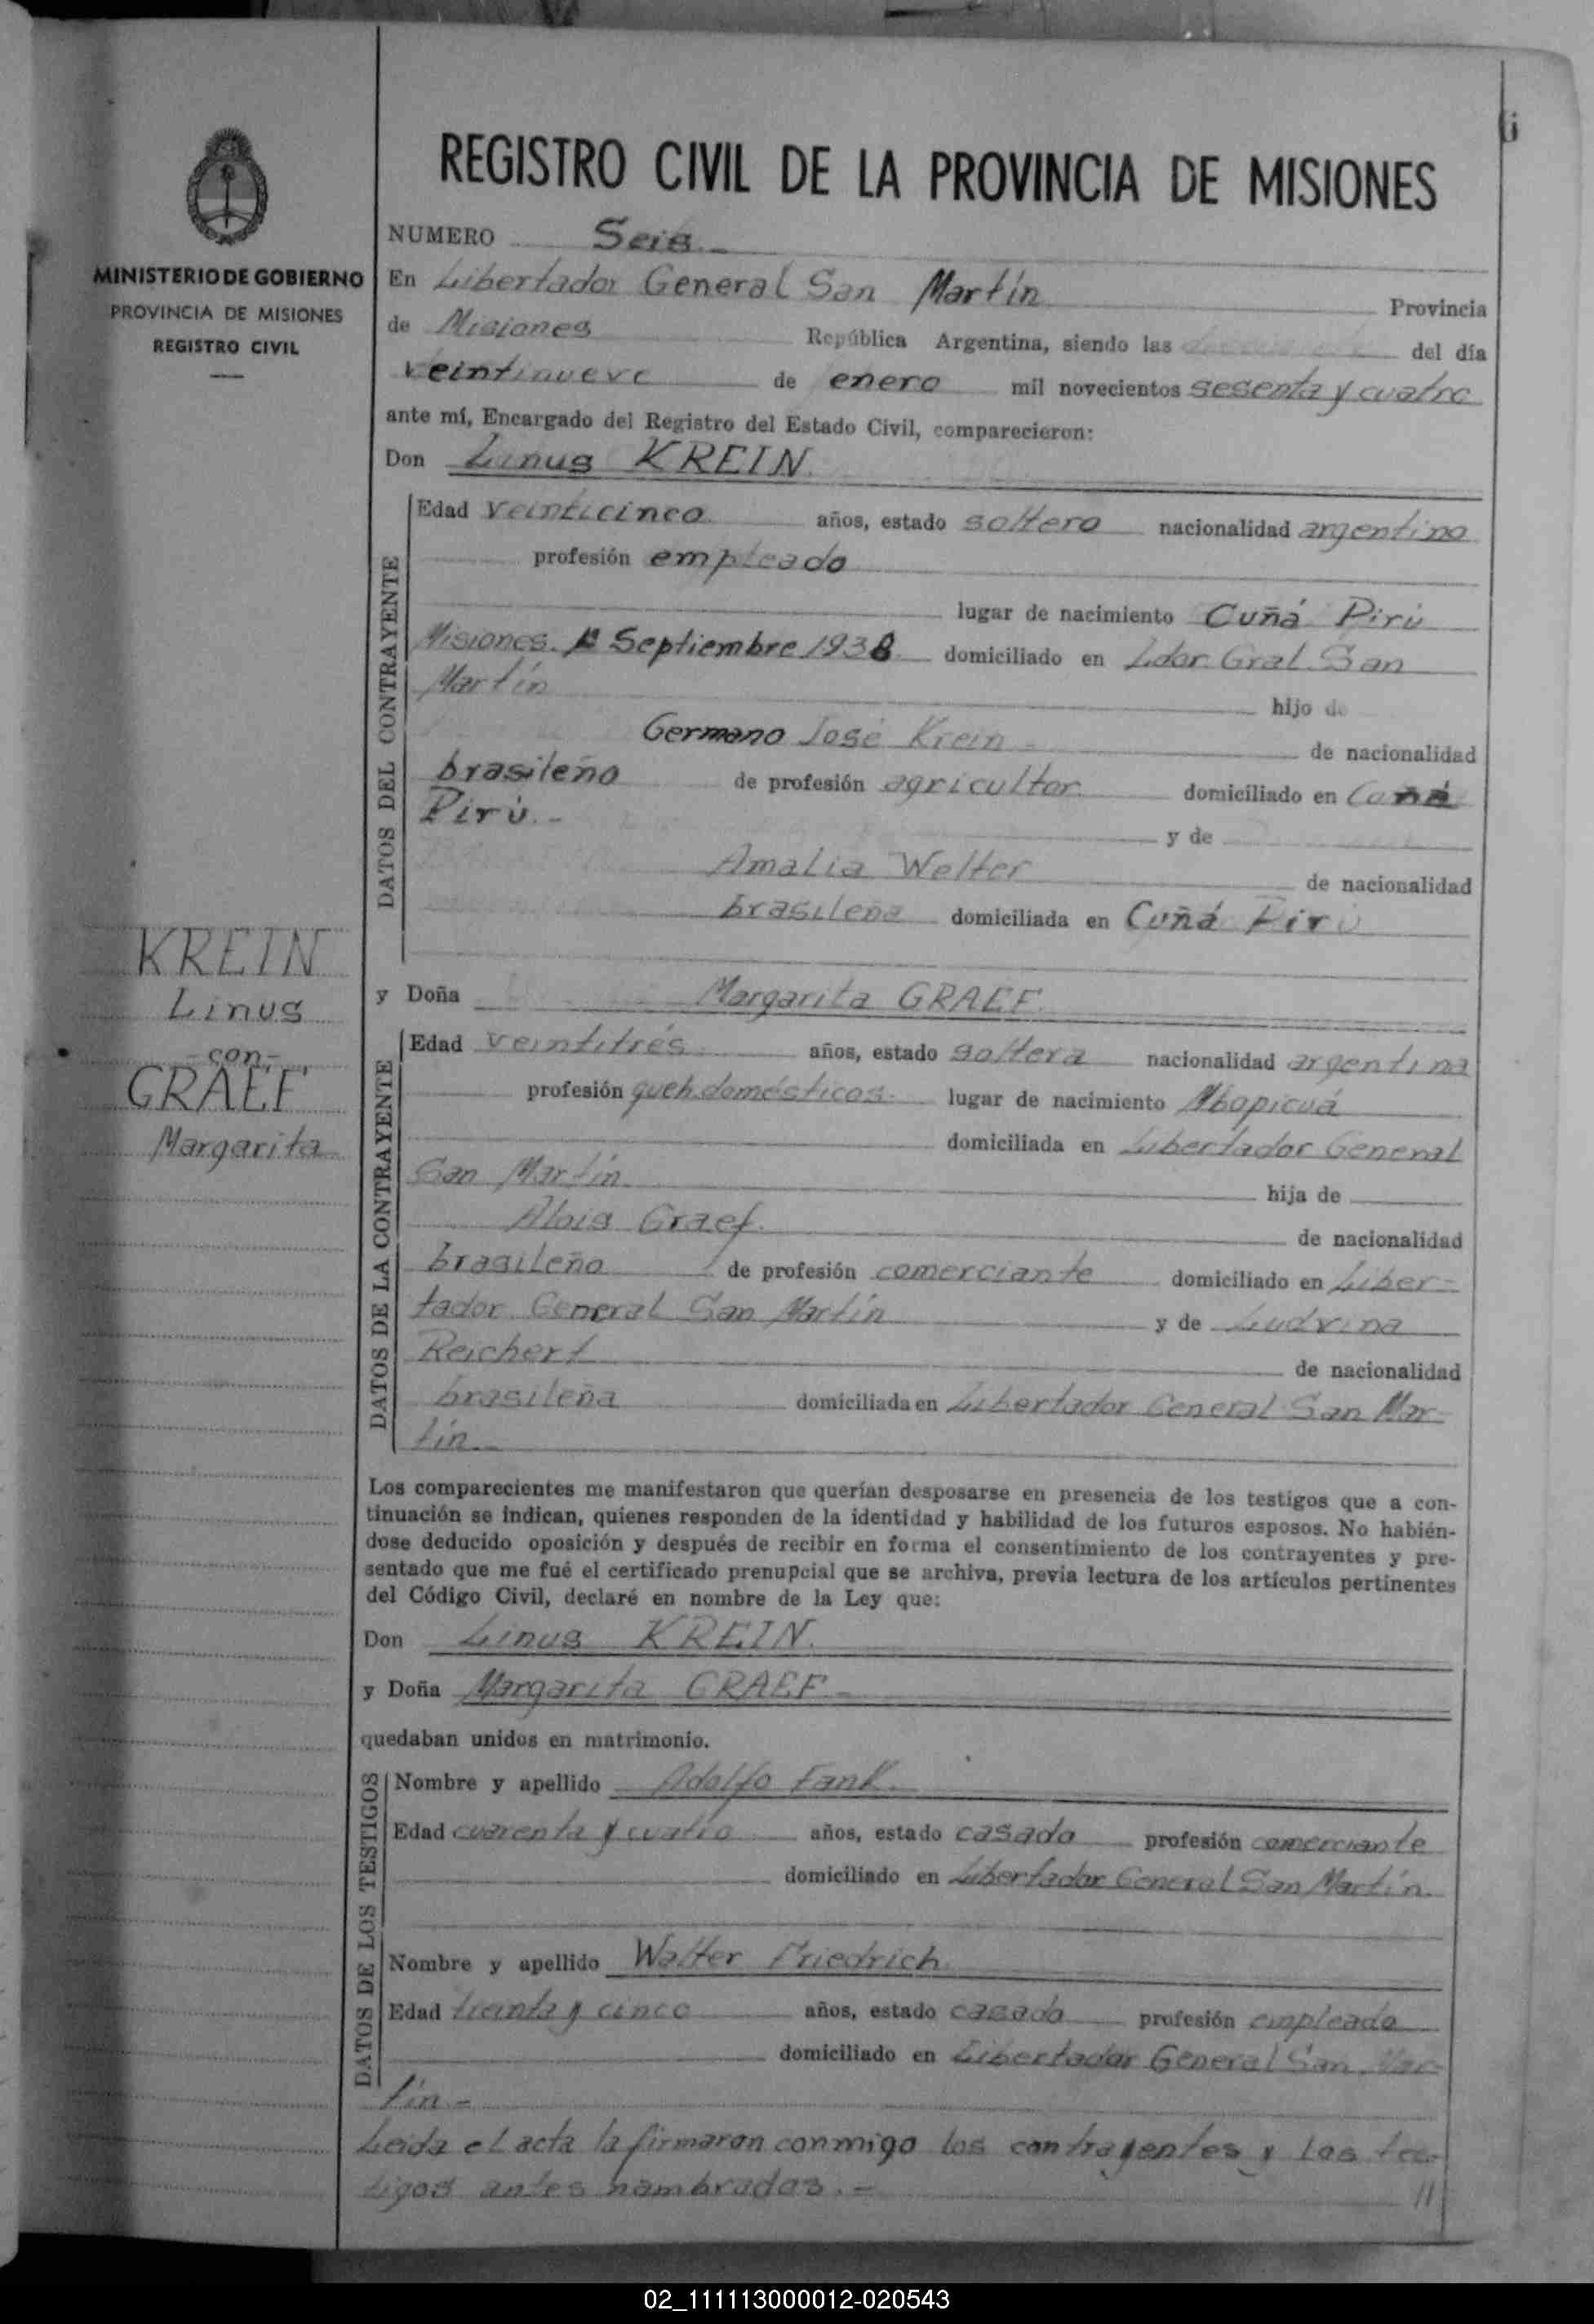 6
REGISTRO CIVIL DE LA PROVINCIA DE MISIONES
MINISTERIO DE GOBIERNO
PROVINCIA DE MISIONES
REGISTRO CIVIL
KREIN
Linus
-con-
GRAEF
Margarita
NUMERO Seis
En Libertador General San Martín Provincia
de Misiones República Argentina, siendo las del día
veintinueve de enero mil novecientos sesenta y cuatro
ante mí, Encargado del Registro del Estado Civil, comparecieron:
Don Linus KREIN.
DATOS DEL CONTRAYENTE
Edad veinticinco años, estado soltero nacionalidad argentina
profesión empleado
lugar de nacimiento Cuñá Pirú
Misiones. Septiembre 1938 domiciliado en Ldor. Gral. San
Martín hijo de
Germano José Krein - de nacionalidad
brasileño de profesión agricultor domiciliado en Cuñá
Pirú.- y de
Amalia Welter de nacionalidad
brasileña domiciliada en Cuñá Pirú
y Doña Margarita GRAEF.
DATOS DE LA CONTRAYENTE
Edad veintitrés años, estado soltera nacionalidad argentina
profesión queh. domésticos. lugar de nacimiento Mbopicuá
domiciliada en Libertador General
San Martín. hija de
Alois Graef. de nacionalidad
brasileño de profesión comerciante domiciliado en Liber-
tador General San Martín y de Ludvina
Reichert de nacionalidad
brasileña domiciliada en Libertador General San Mar-
tín.
Los comparecientes me manifestaron que querían desposarse en presencia de los testigos que a con-
tinuación se indican, quienes responden de la identidad y habilidad de los futuros esposos. No habién-
dose deducido oposición y después de recibir en forma el consentimiento de los contrayentes y pre-
sentado que me fué el certificado prenupcial que se archiva, previa lectura de los artículos pertinentes
del Código Civil, declaré en nombre de la Ley que:
Don Linus KREIN.
y Doña Margarita GRAEF -
quedaban unidos en matrimonio.
DATOS DE LOS TESTIGOS
Nombre y apellido Adolfo Fank.
Edad cuarenta y cuatro años, estado casado profesión comerciante
domiciliado en Libertador General San Martín.
Nombre y apellido Walter Friedrich
Edad treinta y cinco años, estado casado profesión empleado
domiciliado en Libertador General San Mar-
tín -
Leída el acta la firmaron conmigo los contrayentes y los tes-
tigos antes nombrados. -
//
02_111113000012-020543